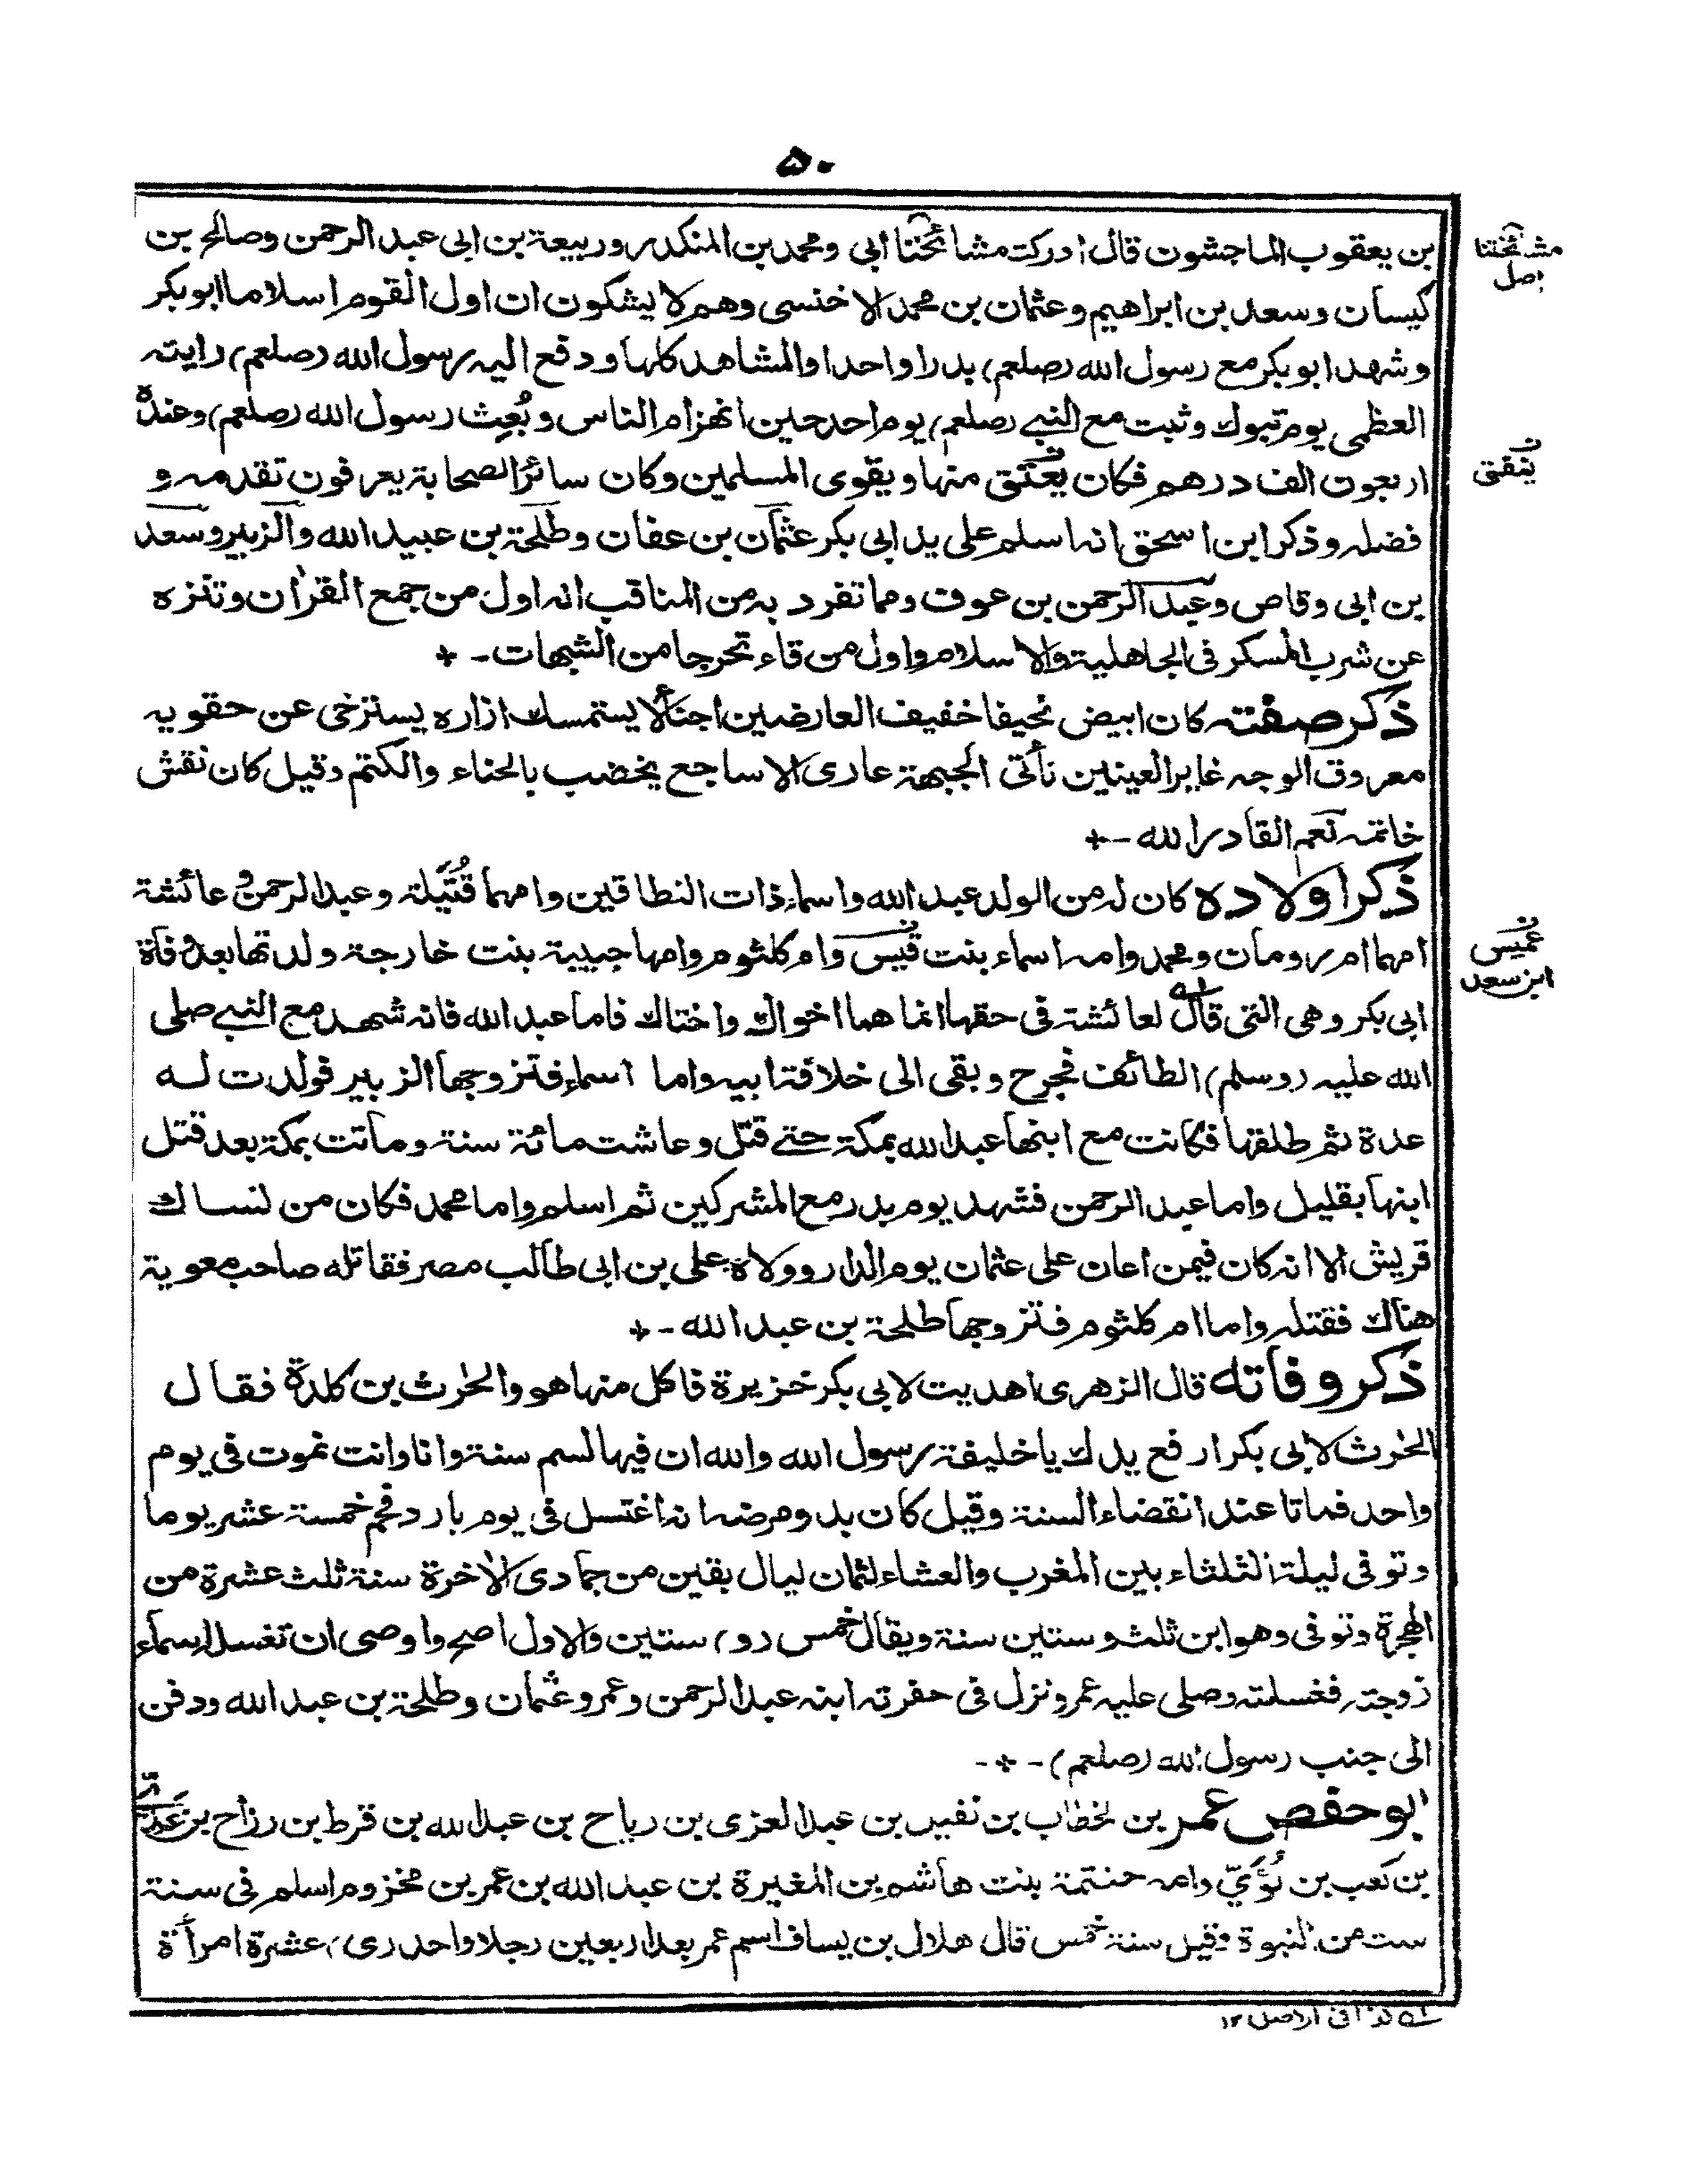 ٥٠
بن يعقوب الماجشون قال ادركت مشائختنا ابى ومحمد بن المنكدر وربيعة بن ابى عبد الرحمن وصالح بن
مشئختنا
اصل
كيسان وسعد بن ابراهيم وعثمان بن محمد الاخنسى وهم لا يشكون ان اول القوم اسلاما ابو بكر
وشهد ابو بكر مع رسول الله (صلعم) بدرا واحدا والمشاهد كلها ودفع اليه رسول الله (صلعم) رايته
العظمى يوم تبوك وثبت مع النبى (صلعم) يوم احد حين انهزام الناس وبُعِث رسول الله (صلعم) وعنده
اربعون الف درهم فكان يعتق منها ويقوى المسلمين وكان سائر الصحابة يعرفون تقدمه و
ينفق
فضله وذكر ابن اسحق انه اسلم على يد ابى بكر عثمان بن عفان وطلحة بن عبيد الله والزبير وسعد
بن ابى وقاص وعبد الرحمن بن عوف ومما تفرد به من المناقب انه اول من جمع القران وتنزه
عن شرب المسكر فى الجاهلية والاسلام واول من قاء تحرجا من الشبهات - +
ذكر صفته كان ابيض نحيفا خفيف العارضين اجنأ لا يستمسك ازاره يسترخى عن حقويه
معروق الوجه غاير العينين نأتى الجبهة عارى الاساجع يخضب بالحناء والكتم وقيل كان نقش
خاتمه نعم القادر الله - +
ذكر اولاده كان له من الولد عبد الله واسماء ذات النطاقين وامهما قُتَيلة وعبد الرحمن و عائشة
امهما ام رومان ومحمد وامه اسماء بنت قيس وام كلثوم وامها حبيبة بنت خارجة ولدتها بعد وفاة
عميس
ابن سعد
ابى بكر وهى التى قال لعائشة فى حقها انما هما اخواك واختاك فاما عبد الله فانه شهد مع النبى صلى
الله عليه (وسلم) الطائف فجرح وبقى الى خلافة ابيه واما اسماء فتزوجها الزبير فولدت له
عدة ثم طلقها فكانت مع ابنها عبد الله بمكة حتى قتل وعاشت مائة سنة وماتت بمكة بعد قتل
ابنها بقليل واما عبد الرحمن فشهد يوم بدر مع المشركين ثم اسلم واما محمد فكان من نساك
قريش الا انه كان فيمن اعان على عثمان يوم الدار وولاه على بن ابى طالب مصر فقاتله صاحب معوية
هناك فقتله واما ام كلثوم فتزوجها طلحة بن عبد الله - +
ذكر وفاته قال الزهرى اهديت لابى بكر خزيرة فاكل منها هو والحرث بن كلدة فقال
الحرث لابى بكر ارفع يدك يا خليفة رسول الله والله ان فيها لسم سنة وانا وانت نموت فى يوم
واحد فماتا عند انقضاء السنة وقيل كان بدو مرضه انه اغتسل فى يوم بارد فحم خمسة عشر يوما
وتوفى ليلة الثلثاء بين المغرب والعشاء لثمان ليال بقين من جمادى الاخرة سنة ثلث عشرة من
الهجرة وتوفى وهو ابن ثلث وستين سنة ويقال خمس (و) ستين والاول اصح واوصى ان تغسله اسماء
زوجته فغسلته وصلى عليه عمر ونزل فى حفرته ابنه عبد الرحمن وعمر وعثمان وطلحة بن عبد الله ودفن
الى جنب رسول الله (صلعم) - + -
ابو حفص عمر بن الخطاب بن نفيل بن عبد العزى بن رياح بن عبد الله بن قرط بن رزاح بن عدى
بن كعب بن لُؤَيّ وامه حنتمة بنت هاشم بن المغيرة بن عبد الله بن عمر بن مخزوم اسلم فى سنة
ست من النبوة وقيل سنة خمس قال هلال بن يساف اسلم عمر بعد اربعين رجلا واحد (ى) عشرة امرأة
له كذا فى الاصل ١٢